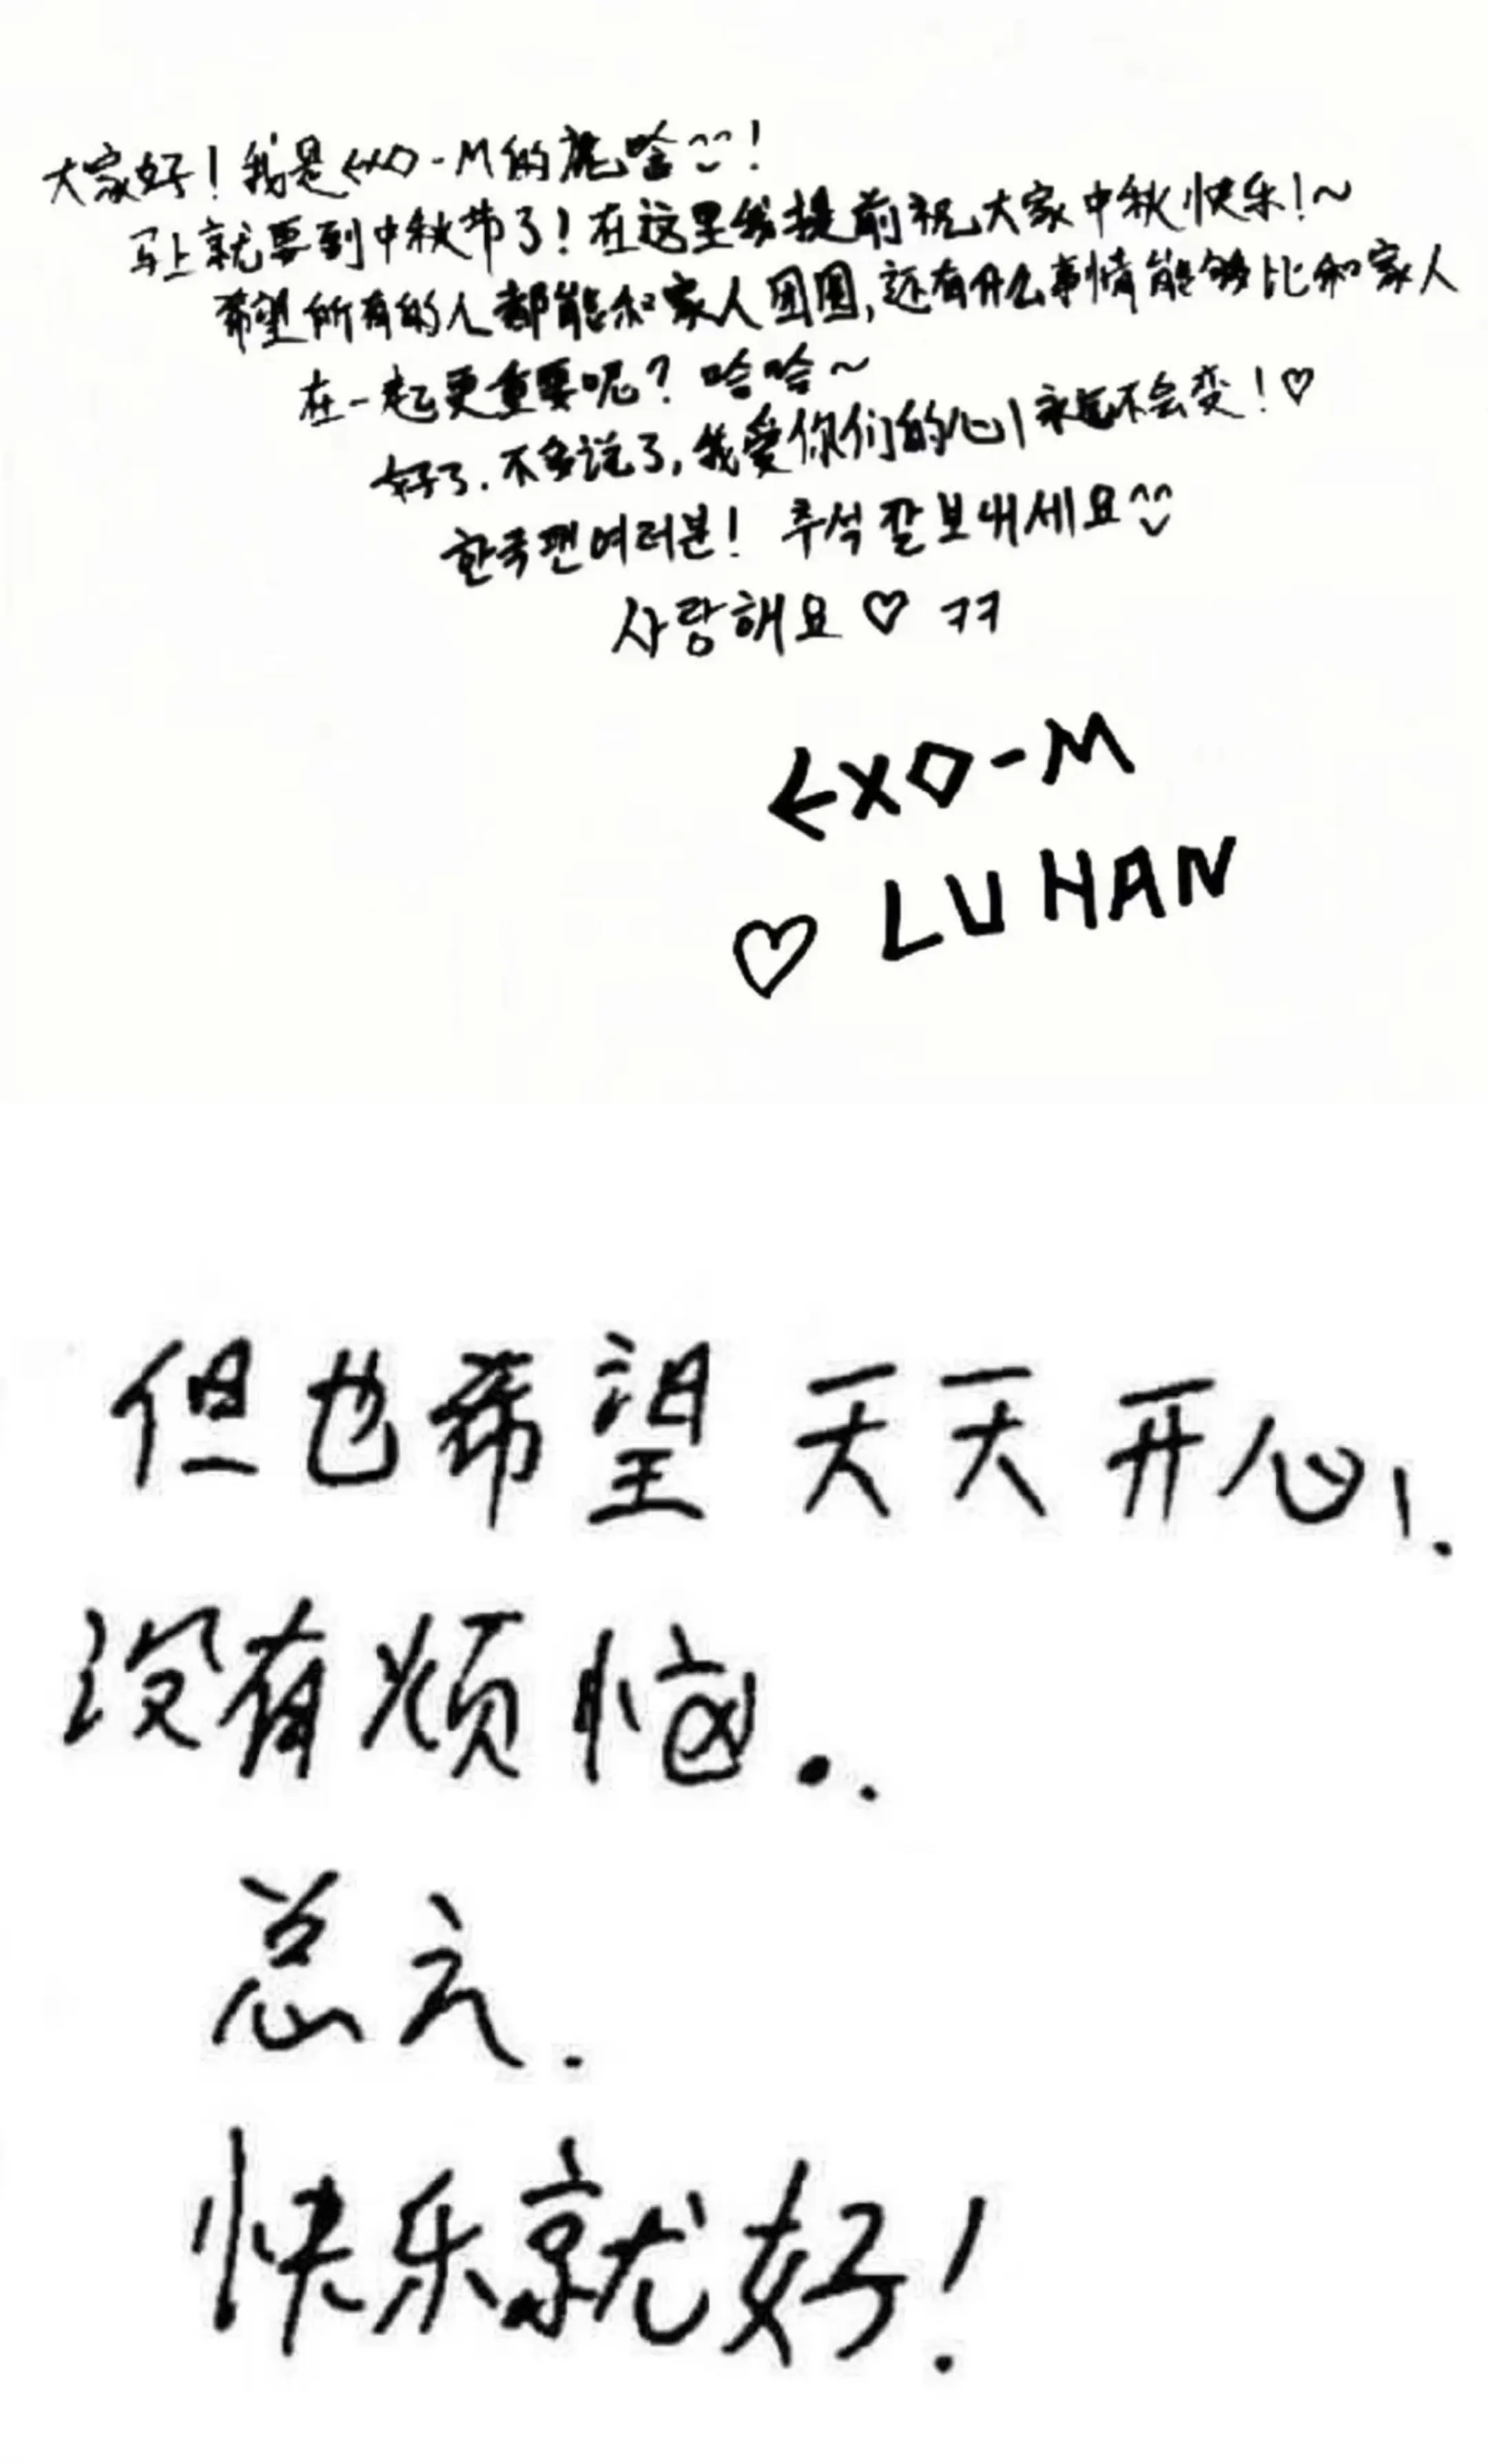 大家好！我是EXO-M的鹿晗^^！
马上就要到中秋节了！在这里我提前祝大家中秋快乐！~
希望所有的人都能和家人团圆，还有什么事情能够比和家人
在一起更重要呢？哈哈~
好了．不多说了，我爱你们的心永远不会变！♡
한국팬여러분! 추석 잘 보내세요^^
사랑해요♡ ㅋㅋ
EXO-M
♡ LUHAN
但也希望 天天 开心！
没有烦恼..
总之.
快乐就好！